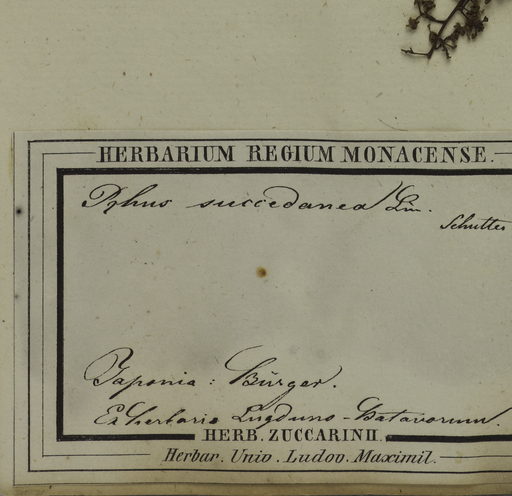 HERBARIUM REGIUM MONACENSE.
Rhus succedanea Lin.
Schultes
Japonia: Bürger.
Ex herbario Lugduno-Batavorum.
HERB. ZUCCARINII.
Herbar. Univ. Ludov. Maximil.